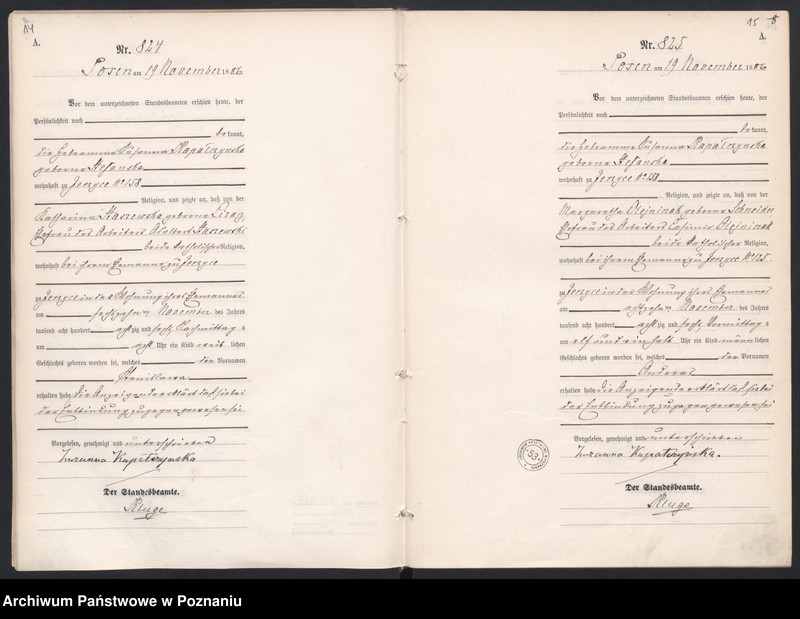 14
A.
Nr. 824
Posen am 19 November 1886
Vor dem unterzeichneten Standesbeamten erschien heute, der
Persönlichkeit nach
bekannt,
die Hebeamme Susanna Kapalczynska
geborene Stefanska
wohnhaft zu Jerzyce No 158
Religion, und zeigte an, daß von der
Katharina Staszewska geborene
Ehefrau des Arbeiters Adalbert Staszewski
beide katholischer Religion,
wohnhaft bei ihrem Ehemanne zu Jerzyce
zu Jerzyce in der Wohnung ihres Ehemannes
am sechszehn ten November des Jahres
tausend acht hundert achtzig und sechs Nachmittag s
um acht Uhr ein Kind weib lichen
Geschlechts geboren worden sei, welches den Vornamen
Stanislawa
erhalten habe. Die Anzeigende erklärt daß sie bei
der Entbindung zugegen gewesen sei
Vorgelesen, genehmigt und unterschrieben
Zuzanna Kapałczyńska
Der Standesbeamte.
Kluge
15
A.
Nr. 825
Posen am 19 November 1886
Vor dem unterzeichneten Standesbeamten erschien heute, der
Persönlichkeit nach
bekannt,
die Hebeamme Susanna Kapalczynska
geborene Stefanska
wohnhaft zu Jerzyce No 158
Religion, und zeigte an, daß von der
Margaretha Olejniczak geborene Schneider
Ehefrau des Arbeiters Casimir Olejniczak
beide katholischer Religion,
wohnhaft bei ihrem Ehemanne zu Jerzyce No 125
zu Jerzyce in der Wohnung ihres Ehemannes
am achtzehn ten November des Jahres
tausend acht hundert achtzig und sechs Vormittag s
um elf und ein halb Uhr ein Kind männ lichen
Geschlechts geboren worden sei, welches den Vornamen
Andreas
erhalten habe. Die Anzeigende erklärt daß sie bei
der Entbindung zugegen gewesen sei
53
Vorgelesen, genehmigt und unterschrieben
Zuzanna Kapałczyńska.
Der Standesbeamte.
Kluge
Archiwum Państwowe w Poznaniu